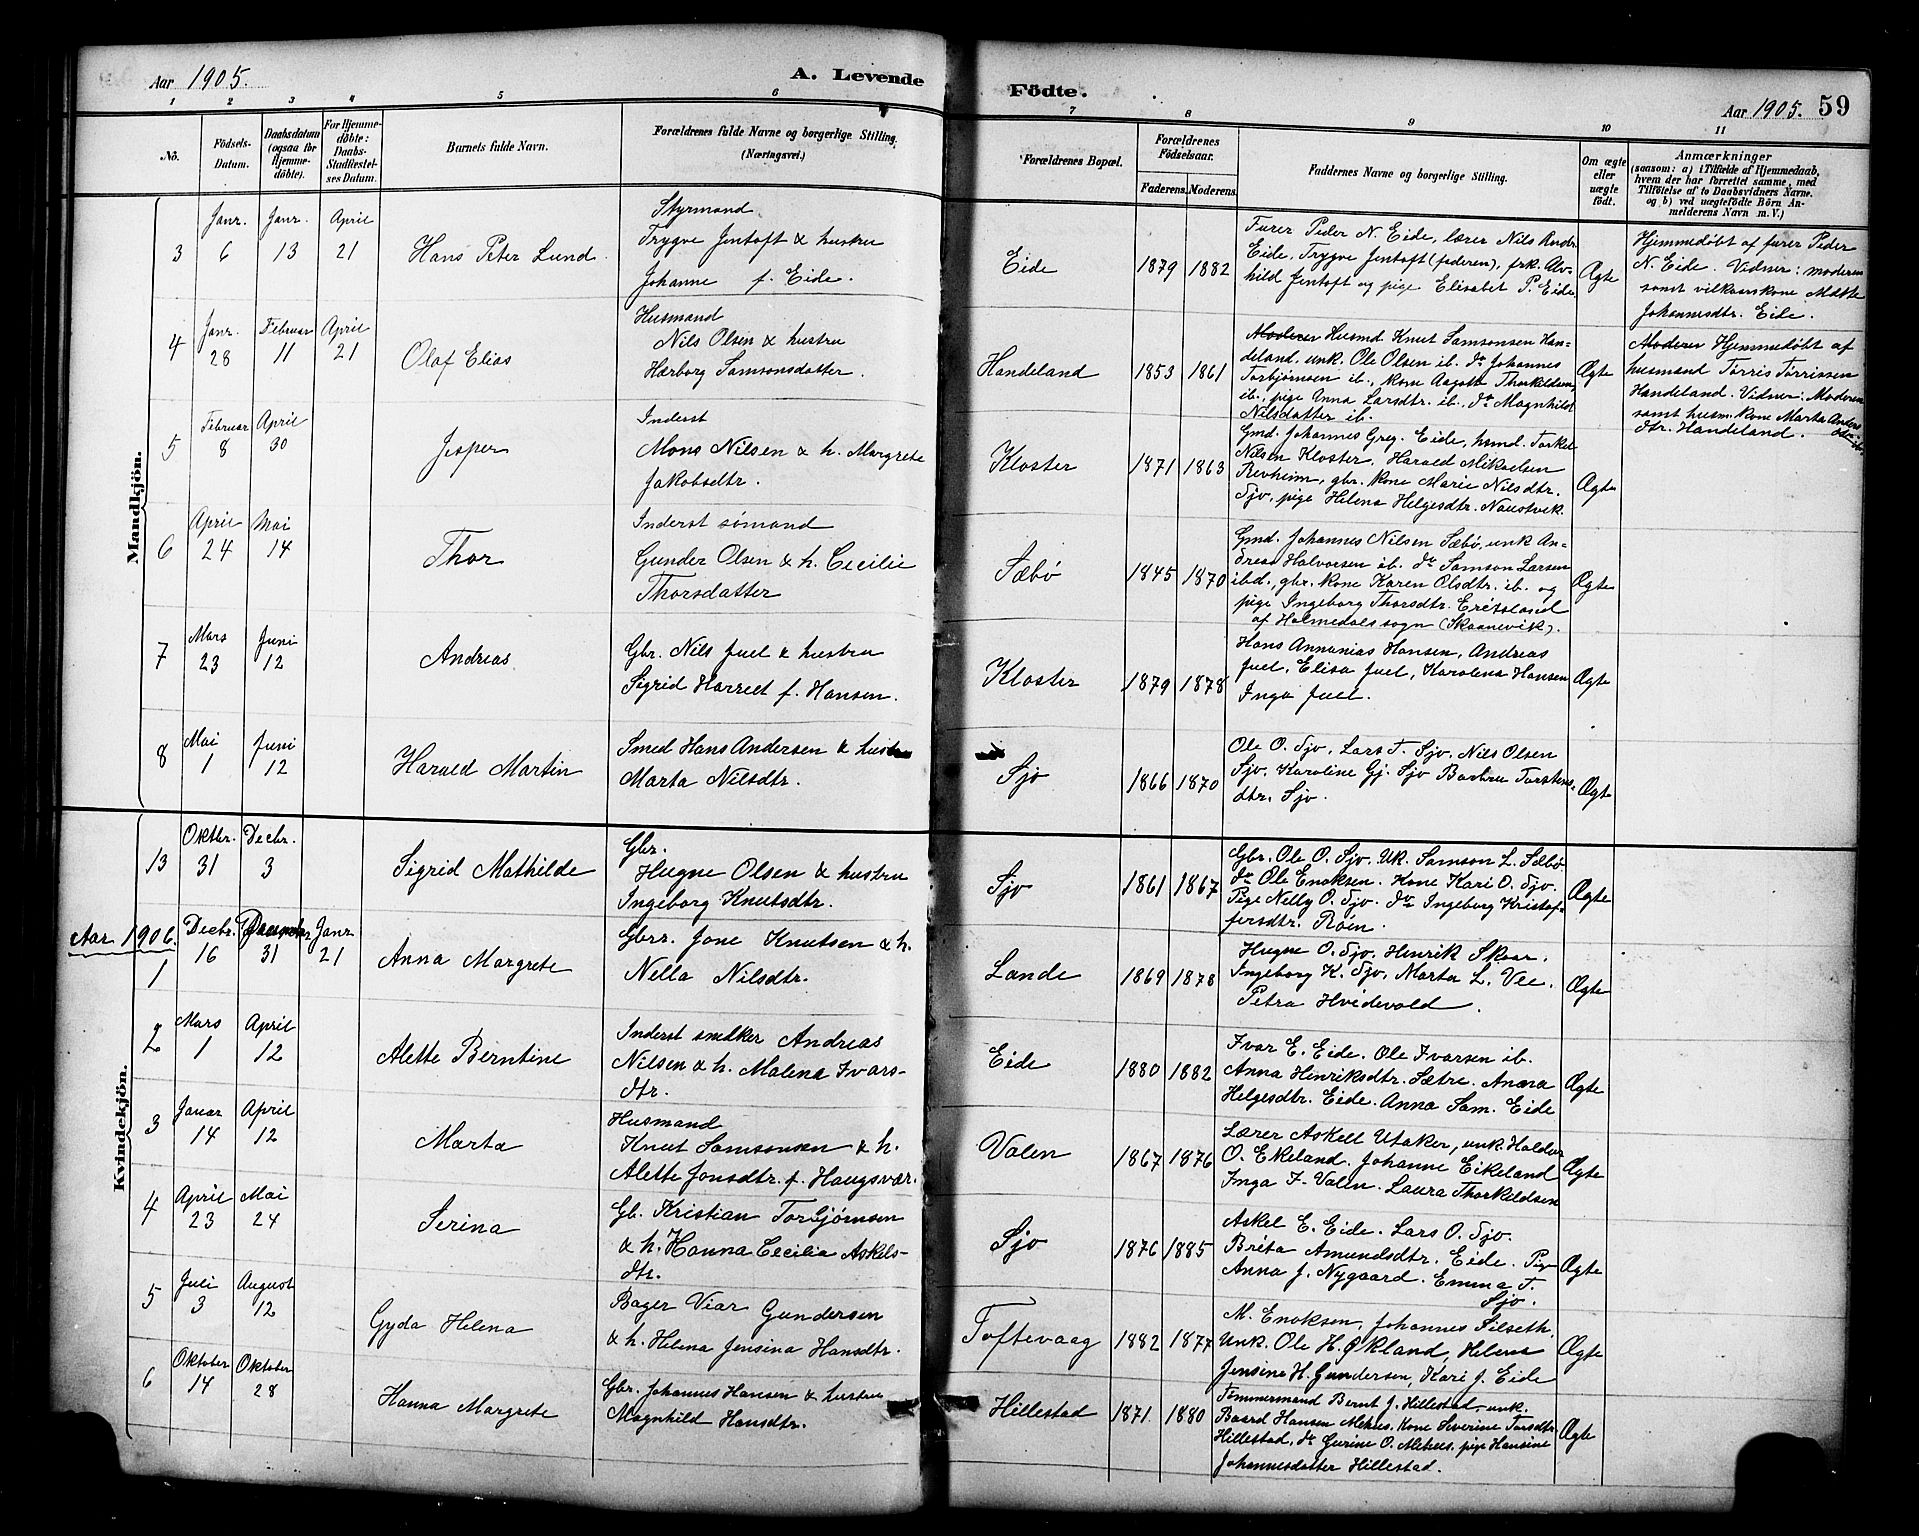 Aar 1905.
A. Levende
Födte.
Aar 1905. 59
1 2 3 4 5 6 7 8 9 10 11
No.
Födsels-
Datum.
Daabsdatum
(ogsaa for
Hjemme-
döbte).
For Hjemme-
döbte:
Daabs-
Stadfestel-
ses Datum.
Barnets fulde Navn.
Forældrenes fulde Navne og borgerlige Stilling.
(Næringsvei.)
Forældrenes Bopæl.
Forældrenes
Födselsaar.
Faderens. Moderens.
Faddernes Navne og borgerlige Stilling.
Om ægte
eller
uægte
födt.
Anmærkninger
(saasom: a) i Tilfælde af Hjemmedaab,
hvem der har forrettet samme, med
Tilföielse af to Daabsvidners Navne.
og b) ved uægtefödte Börn An-
melderens Navn m. V.)
Mandkjön.
3
Janr.
6
Janr.
13
April
21
Hans Peter Lund
Styrmand
Trygve Jentoft & hustru
Johanne f. Eide.
Eide
1879 1882
Furer Peder N. Eide, lærer Nils Andr.
Eide, Trygve Jentoft (faderen), frk. Alv-
hild Jentoft og pige Elisabet P. Eide
Ægte
Hjemmedøbt af furer Peder
N. Eide. Vidner: moderen
samt vilkaarskone Mætte
Johannesdtr. Eide.
4
Janr.
28
Februar
11
April
21
Olaf Elias
Husmand
Nils Olsen & hustru
Hærborg Samsonsdatter.
Handeland
1853 1861
Moderen Husmd Knut Samsonsen Han-
deland. unk. Ole Olsen ib. do Johannes
Torbjørnsen ib., kone Aagot Thorkildsen
ib., pige Anna Larsdtr. ib., do Magnhild
Nilsdatter ib.
Ægte
Moderen Hjemmedøbt af
husmand Tørris Tørrissen
Handeland. Vidner: Moderen
samt husm. kone Marta Anders
dtr. Handeland.
5
Februar
8
April
30
Jesper
Inderst
Mons Nilsen & h. Margrete
Jakobsdtr.
Kloster
1871 1863
Gmd. Johannes Greg. Eide, husmd. Torkel
Nilsen Kloster, Harald Mikaelsen
Bevheim, gbr. kone Marie Nilsdtr.
Sjo, pige Helena Helgesdtr. Naustvik.
Ægte
6
April
24
Mai
14
Thor
Inderst sømand
Gunder Olsen & h. Cecilie
Thorsdatter
Sæbø
1845 1870
Gmd. Johannes Nilsen Sæbø, unk An-
dreas Halvorsen ib. do Samson Larsen
ibd., gbr. kone Karen Olsdtr. ib. og
pige Ingeborg Thorsdtr.
af Holmedals sogn (Skaanevik).
Ægte
7
Mars
23
Juni
12
Andreas
Gbr. Nils Juel & hustru
Sigrid Harriet f. Hansen.
Kloster
1879 1878
Hans Annanias Hansen, Andreas
Juel, Elisa Juel, Karolena Hansen
Inga Juel.
Ægte
8
Mai
1
Juni
12
Harald Martin
Smed Hans Andersen & hustru
Marta Nilsdtr.
Sjo
1866 1870
Ole O. Sjo, Lars T. Sjo, Nils Olsen
Sjo, Karoline Gj. Sjo Barbru Torstens-
dtr. Sjo.
Ægte
Kvindekjön.
13
Oktbr.
31
Decbr.
3
Sigrid Mathilde
Gbr.
Hugne Olsen & hustru
Ingeborg Knutsdtr.
Sjo
1861 1867
Gbr. Ole O. Sjo. Uk. Samson L. Sæbø
do Ole Enoksen. Kone Kari O. Sjo.
Pige Nelly O. Sjo. do Ingeborg Kristof-
fersdtr. Røen.
Ægte
Aar 1906.
1
Decbr.
16
31
Janr
21
Anna Margrete
Gbr. Jone Knutsen & h.
Nella Nilsdtr.
Lande
1869 1878
Hugne O. Sjo, Henrik Skaar.
Ingeborg K. Sjo, Marta L. Vee.
Petra Hvidevold.
Ægte
2
Mars
1
April
12
Alette Berntine
Inderst snedker Andreas
Nilsen & h. Malena Ivars-
dtr.
Eide
1880 1882
Ivar E. Eide. Ole Ivarsen ib.
Anna Henriksdtr. Sætre. Anna
Helgesdtr. Eide. Anna Sam. Eide
Ægte
3
Januar
14
April
12
Marta
Husmand
Knut Samsonsen & h.
Alette Jonsdtr. f. Haugsvær.
Valen
1867 1876
Lærer Askell Utaker, unk Haldor
O. Ekeland. Johanne Eikeland
Inga F. Valen. Laura Thorkildsen
Ægte
4
April
23
Mai
24
Serina
Gb. Kristian Torbjørnsen
& h. Hanna Cecilia Askels-
dtr.
Sjo
1876 1885
Askel E. Eide. Lars O. Sjo.
Brita Amundsdtr. Eide. Pige
Anna J. Nygaard. Emma T.
Sjo.
Ægte
5
Juli
3
August
12
Gyda Helena
Bager Viar Gundersen
& h. Helena Jensina Hansdtr.
Toftevaag
1882 1877
M. Enoksen, Johannes Silseth,
Unk. Ole H. Økland, Helena
Jensina H. Gundersen, Kari J. Eide
Ægte
6
Oktober
14
Oktober
28
Hanna Margrete
Gbr. Johannes Hansen & hustru
Magnhild Hansdtr.
Hillestad
1871. 1880
Tømmermand Bernt J. Hillestad. unk.
Baard Hansen Mehus. Kone Severine Torsdtr
Hillestad, do Gurine O. Mehus. pige Hansine
Johannesdatter Hillestad.
Ægte